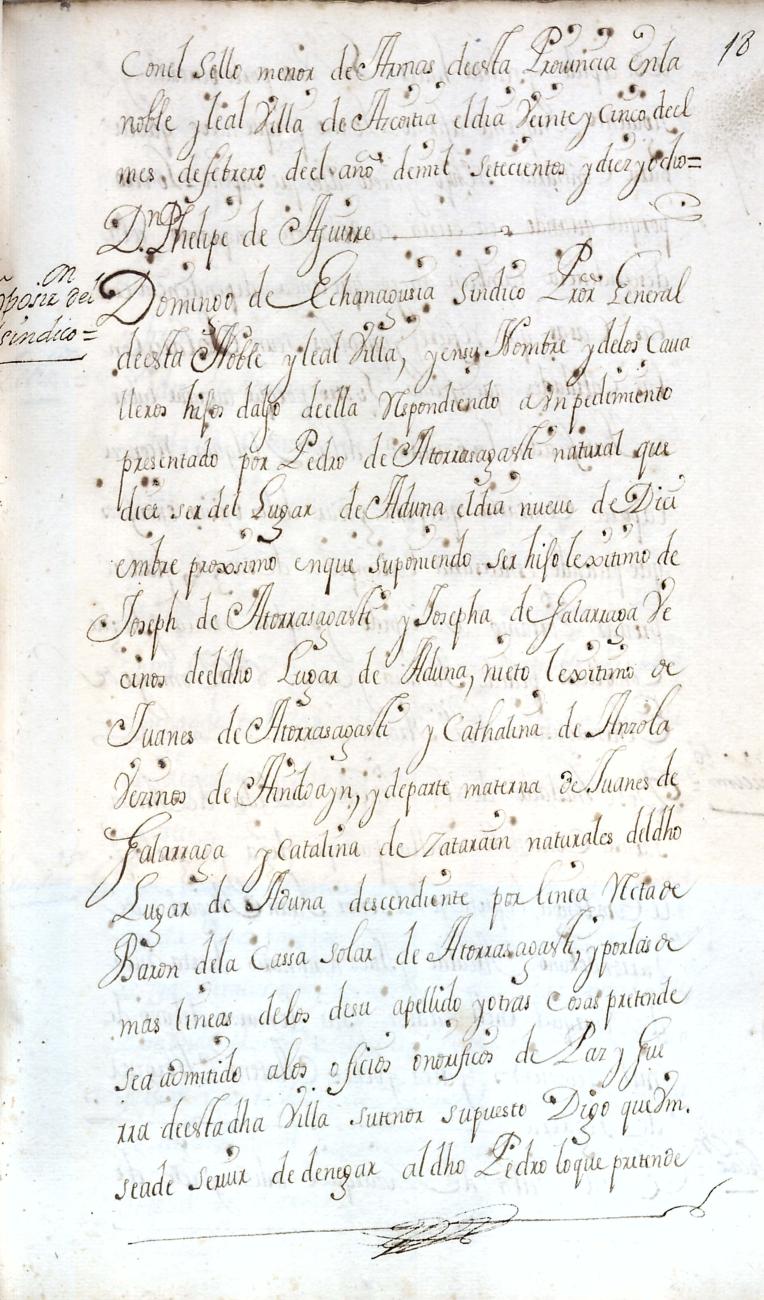 18
Conel Sello menor de Armas deesta Prouincia Enla
noble y leal Villa de Azcoitia eldia Veinte y Cinco deel
mes defebrero deel año demil setecientos y diez y ocho=
Dn. Phelipe de Aguirre
oposizon del
sindico=
Domingo de Echanagusia Sindico Pror General
deesta Noble y leal Villa, y ensu Nombre y delos Caua
lleros hijos dalgo deella Respondiendo a Vn pedimiento
presentado por Pedro de Atorrasagasti natural que
dice ser del Lugar de Aduna eldia nueve de Dici
embre proxsimo enque suponiendo ser hijo lexitimo de
Joseph de Atorrasagasti y Josepha de Galarraga Ve
cinos deeldho Lugar de Aduna, nieto lexitimo de
Juanes de Atorrasagasti y Cathalina de Anzola
Vezinos de Andoayn, y departe materna de Juanes de
Galarraga y Catalina de Zatarain naturales deldho
Lugar de Aduna descendiente por linea Recta de
Baron dela Cassa solar de Atorrasagasti, y porlas de
mas lineas delos desu apellido y otras Cosas pretende
sea admitido alos oficios onorificos de Paz y Gue
rra deestadha Villa sutenor supuesto Digo queVm.
seade seruir de denegar aldho Pedro loque pretende